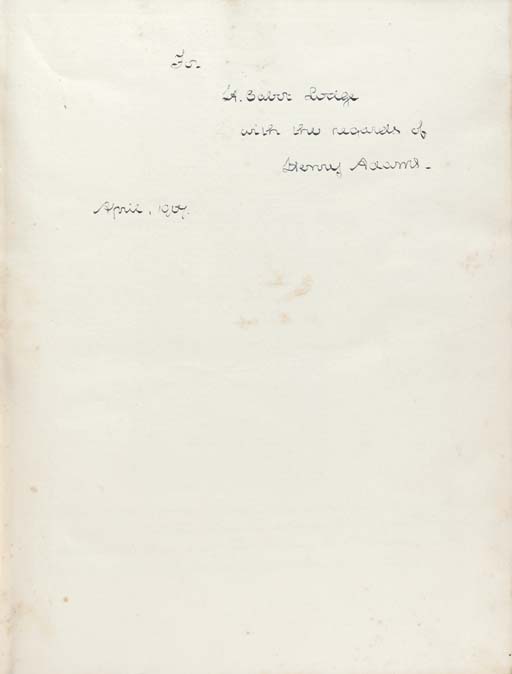 For
H. Cabot Lodge
with the regards of
Henry Adams.
April, 1907.